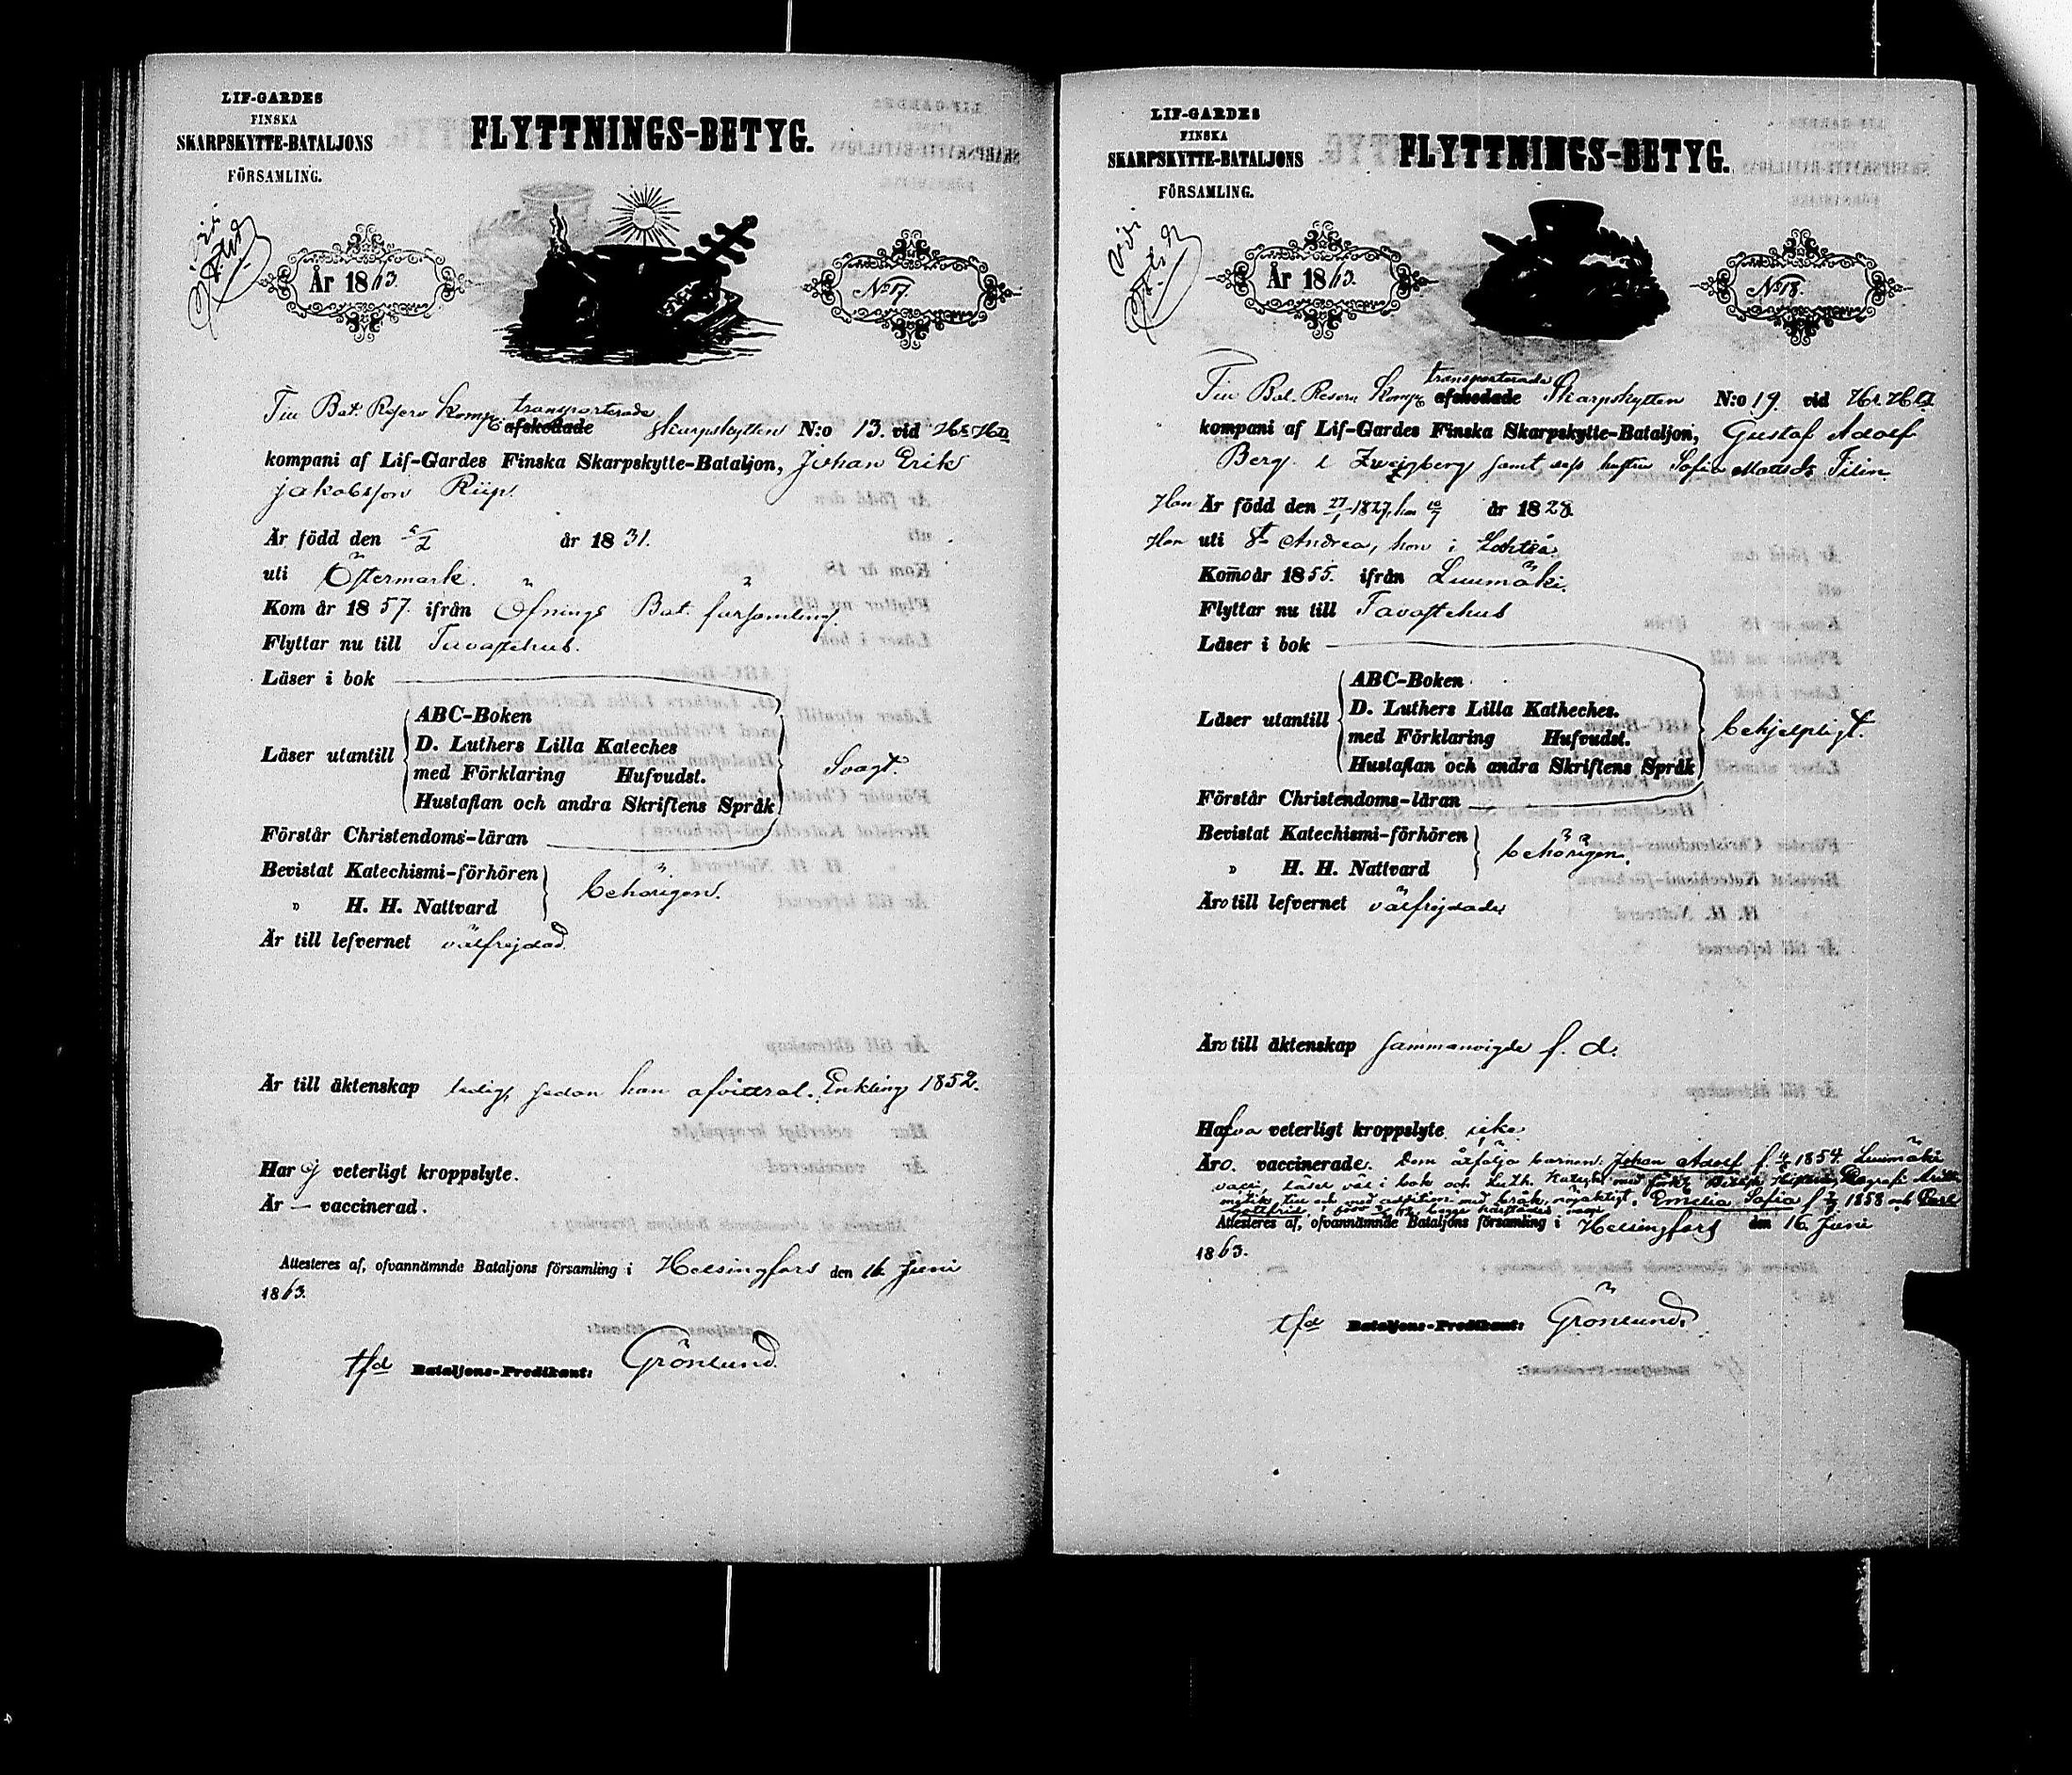 LIF-GARDES
FINSKA
SKARPSKYTTE-BATALJONS
FÖRSAMLING.
FLYTTNINGS-BETYG.
År 1863.
No 17.
Till Bat. Reserv Komp. transporterade
afskedade Skarpskytten N:o 13. vid
kompani af Lif-Gardes Finska Skarpskytte-Bataljon, Johan Erik
Jakobsson
Är född den år 1831.
uti Östermark.
Kom år 1857. ifrån Öfnings Bat. församling.
Flyttar nu till Tavastehus.
Läser i bok
Läser utantill
ABC-Boken
D. Luthers Lilla Kateches
med Förklaring Hufvudst.
Hustaflan och andra Skriftens Språk
Svagt.
Förstår Christendoms-läran
Bevistat Katechismi-förhören
" H. H. Nattvard
behörigen.
Är till lefvernet välfrejdad.
Är till äktenskap ledig, sedan han Enkling 1852.
Har ej veterligt kroppslyte.
Är — vaccinerad.
Attesteres af, ofvannämnde Bataljons församling i Helsingfors den 16 Juni
1863.
tfd Bataljons-Predikant: Grönlund.
LIF-GARDES
FINSKA
SKARPSKYTTE-BATALJONS
FÖRSAMLING.
FLYTTNINGS-BETYG.
Vidi
År 1863.
No 18.
Till Bat. Reserv Komp. transporterade
afskedade Skarpskytten N:o 19. vid
kompani af Lif-Gardes Finska Skarpskytte-Bataljon, Gustaf Adolf
Berg l. Zweigberg samt dess hustru Sofia Mattsd.
Han Är född den 27/1 1827, hon år 1828.
Han uti St Andrea, hon i
Komo år 1855. ifrån Luumäki.
Flyttar nu till Tavastehus
Läser i bok
Läser utantill
ABC-Boken
D. Luthers Lilla Katheches.
med Förklaring Hufvudst.
Hustaflan och andra Skriftens Språk
behjelpligt.
Förstår Christendoms-läran
Bevistat Katechismi-förhören
" H. H. Nattvard
behörigen.
Äro till lefvernet välfrejdade
Äro till äktenskap sammanvigde f. d.
Hafva veterligt kroppslyte icke
Äro. vaccinerade. Dem åtfölja barnen: Johan Adolf f. 1854. Luumäki
läser väl i bok och Luth. Kateches med
Emelia Sofia f. 1858 och Carl
Gottfrid
Attesteres af, ofvannämnde Bataljons församling i Helsingfors den 16 Juni
1863.
tfd Bataljons-Predikant: Grönlund.